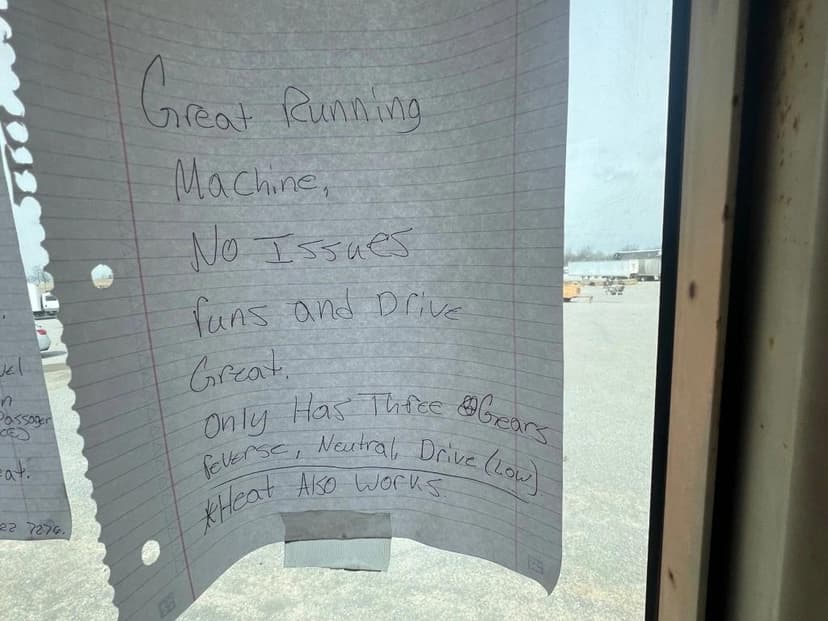 Great Running
Machine,
No Issues
runs and Drive
Great.
only Has Three Gears
reverse, Neutral, Drive (Low)
*Heat Also Works
Passager
eat.
22 7276.